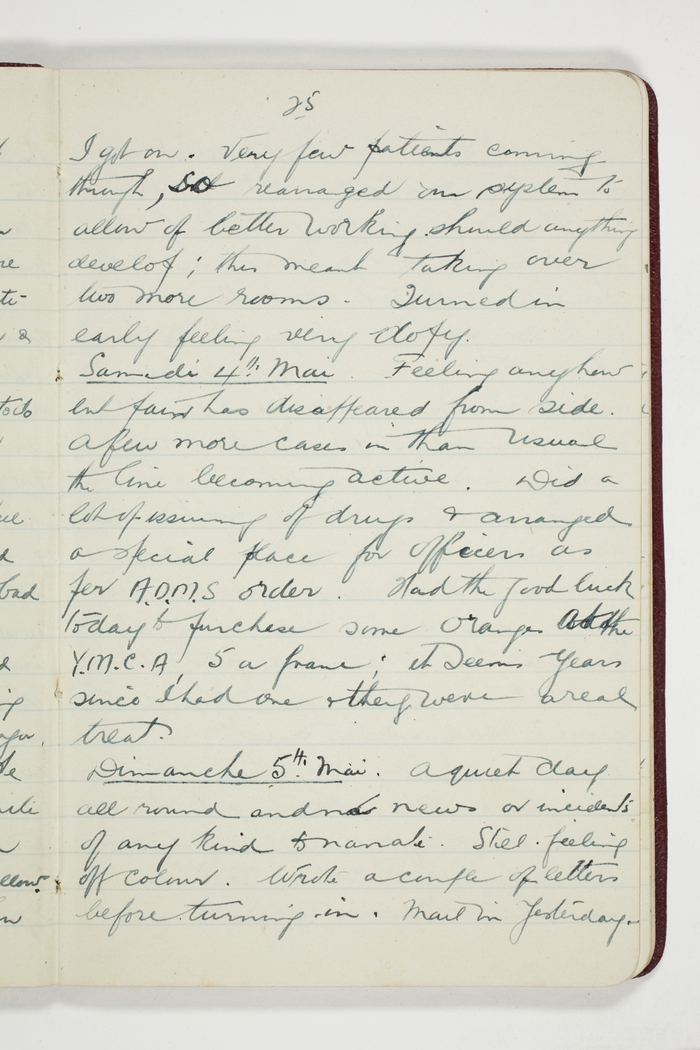 25
I got on. Very few patients coming
through, so rearranged our system to
allow of better working should anything
develop; this meant taking over
two more rooms. Turned in
early feeling very dopy.
Samedi 4th Mai. Feeling anyhow
but pain has disappeared from side.
A few more cases in than usual
the line becoming active. Did a
lot of issuing of drugs & arranged
a special place for Officers as
per A.D.M.S order. Had the good luck
today to purchase some oranges at the
Y.M.C.A, 5 a franc; it seems years
since I had one & they were a real
treat.
Dimanche 5th Mai. A quiet day
all round and no news or incidents
of any kind to narrate. Still feeling
off colour. Wrote a couple of letters
before turning in. Mail in Yesterday.